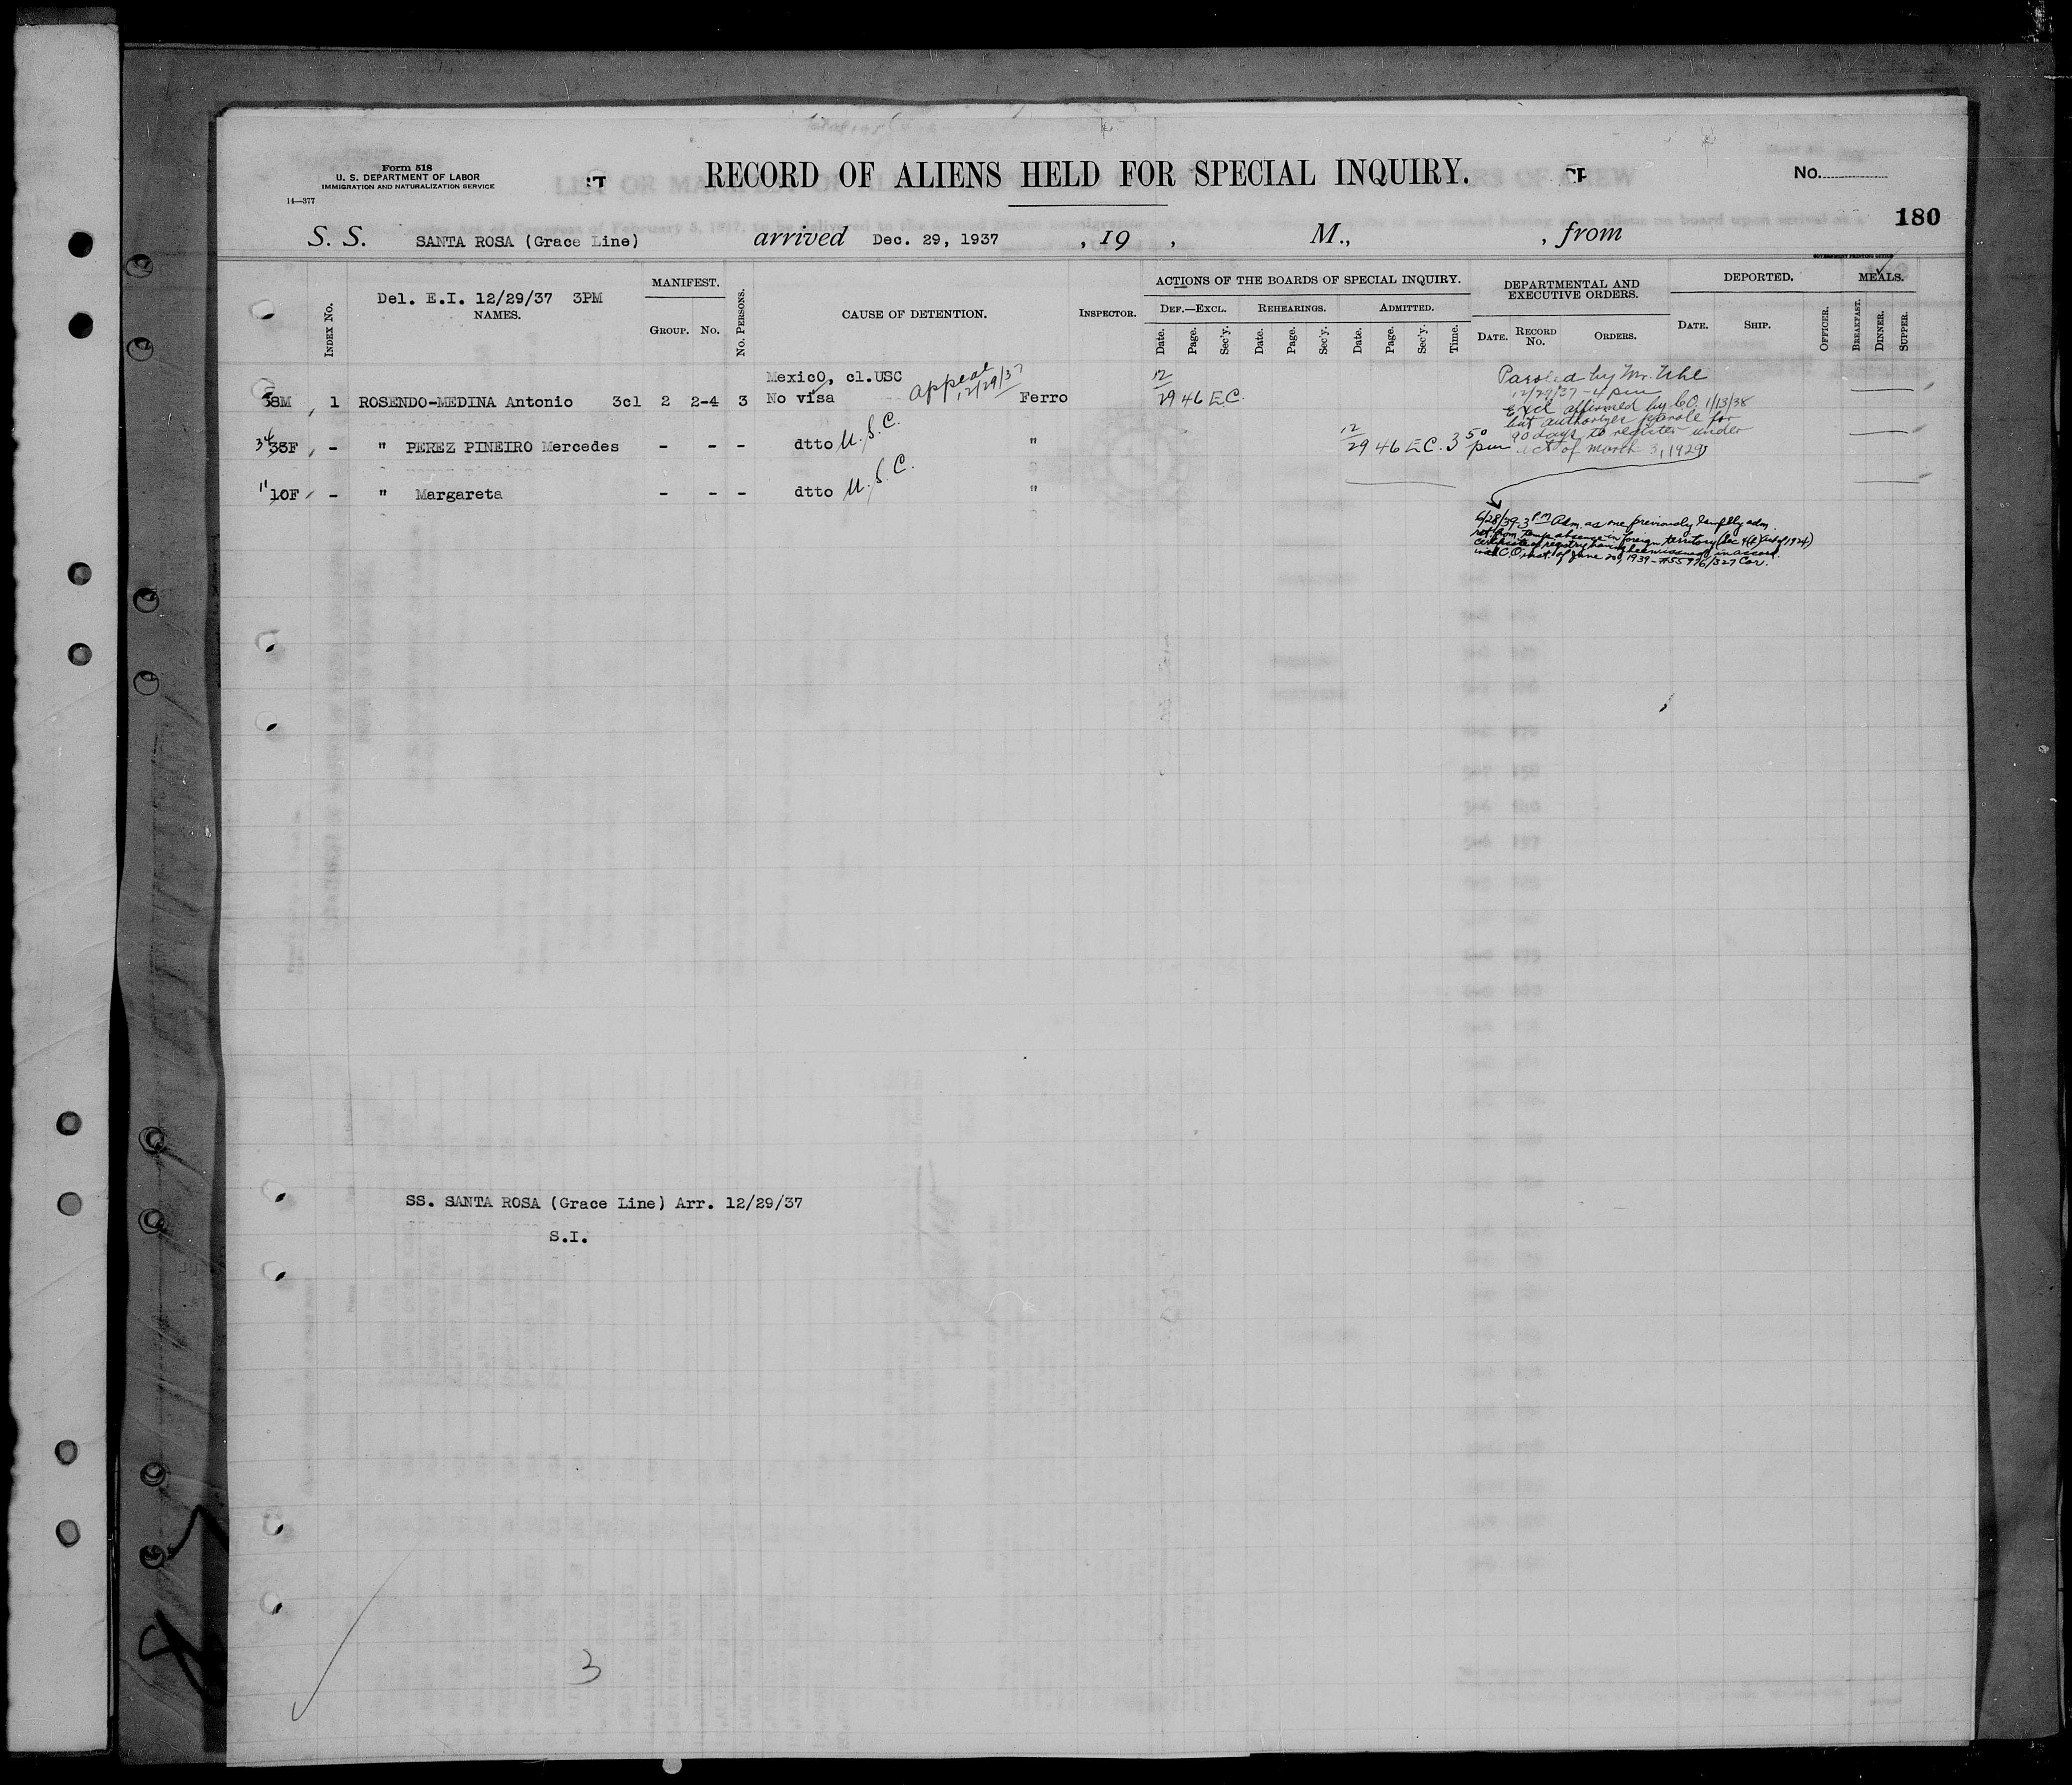 Form 518
U. S. DEPARTMENT OF LABOR
IMMIGRATION AND NATURALIZATION SERVICE
14—377
RECORD OF ALIENS HELD FOR SPECIAL INQUIRY.
No.
180
S. S. SANTA ROSA (Grace Line) arrived Dec. 29, 1937 , 19 , M., , from
GOVERNMENT PRINTING OFFICE
Del. E.I. 12/29/37 3PM
INDEX No. NAMES. MANIFEST. GROUP. No. No. PERSONS. CAUSE OF DETENTION. INSPECTOR.
ACTIONS OF THE BOARDS OF SPECIAL INQUIRY.
DEF.—EXCL. REHEARINGS. ADMITTED.
Date. Page. Sec'y. Date. Page. Sec'y. Date. Page. Sec'y. Time.
DEPARTMENTAL AND EXECUTIVE ORDERS.
DATE. RECORD No. ORDERS.
DEPORTED.
DATE. SHIP. OFFICER.
MEALS.
BREAKFAST. DINNER. SUPPER.
Mexico, cl.USC
38M 1 ROSENDO-MEDINA Antonio 3cl 2 2-4 3 No visa appeal 12/29/37 Ferro 12/29 46 E.C.
Parolled by Mr. Uhl
12/29/37 - 4 pm
Excl affirmed by C.O. 1/13/38
but authorizes parole for
90 days to register under
act of march 3, 1929
34 33F - " PEREZ PINEIRO Mercedes - - - dtto U.S.C. " 12/29 46 E.C. 3 50 pm
11 10F - " Margareta - - - dtto U.S.C. "
6/28/39 3 PM Adm. as one previously lawflly adm.
ret. from temp. absence in foreign territory (Sec 4(b) Act of 1924)
certificate of registry having been issued in accord.
with C.O. inst. of June 20, 1939 - #55976/327 Cov.
SS. SANTA ROSA (Grace Line) Arr. 12/29/37
S.I.
3